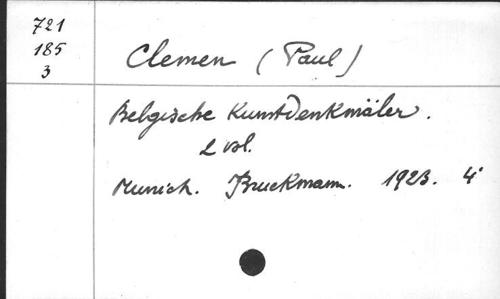 721
185
3
Clemen (Paul)
Belgische Kunstdenkmäler.
2 vol.
Munich. Bruckmann. 1923. 4°